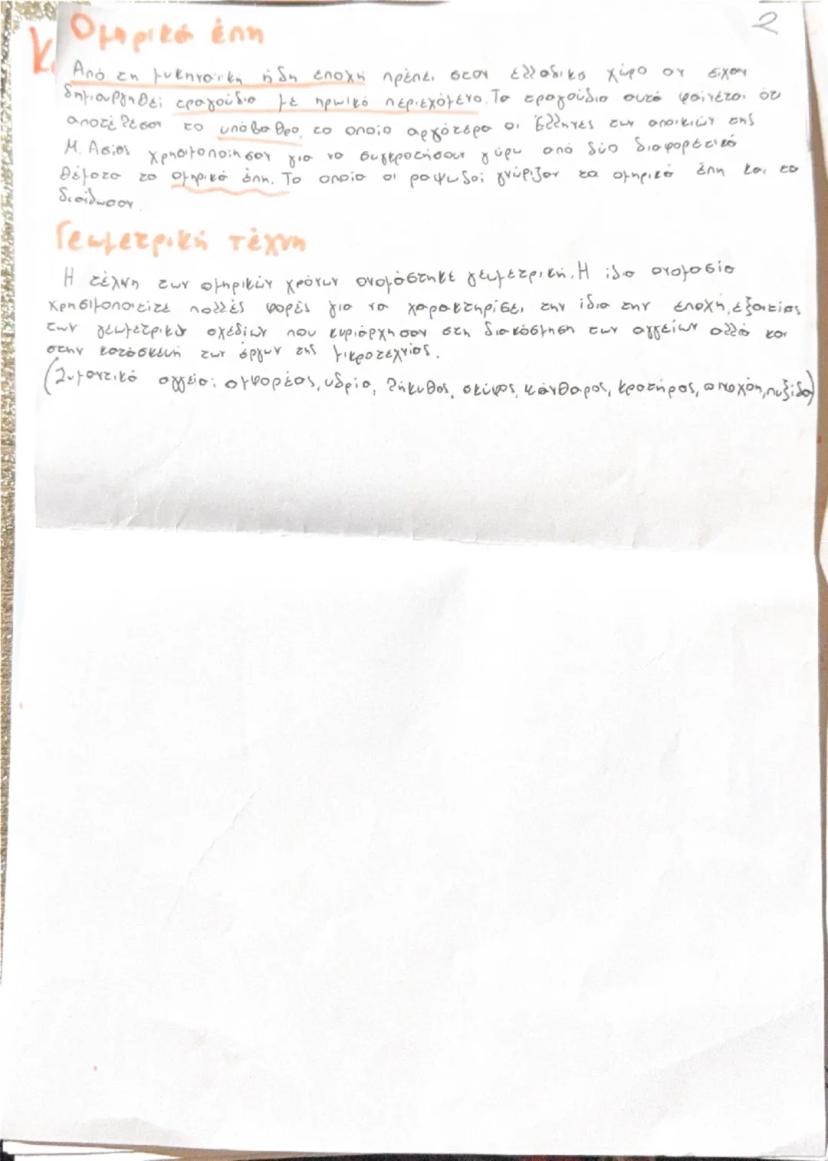 2
Ομηρικά έπη
Κ
Από τη μυκηναϊκή ήδη εποχή πρέπει στον ελλαδικό χώρο αν είχαν
δημιουργηθεί τραγούδια με ηρωικό περιεχόμενο. Τα τραγούδια αυτά φαίνεται ότι
αποτέλεσαν το υπόβαθρο, το οποίο αργότερα οι Έλληνες των αποικιών της
Μ. Ασίας χρησιμοποίησαν για να συγκροτήσουν γύρω από δύο διαφορετικά
θέματα τα ομηρικά έπη. Τα οποία οι ραψωδοί γνώριζαν τα ομηρικά έπη και τα
διαίδωσαν.
Γεωμετρική τέχνη
Η τέχνη των ομηρικών χρόνων ονομάστηκε γεωμετρική. Η ίδια ονομασία
χρησιμοποιείτε πολλές φορές για να χαρακτηρίσει την ίδια την εποχή, εξαιτίας
των γεωμετρικών σχεδίων που κυριάρχησαν στη διακόσμηση των αγγείων αλλά και
στην κατασκευή των έργων της μικροτεχνίας.
(Σημαντικά αγγεία: αμφορέας, υδρία, λήκυθος, σκύφος, κάνθαρος, κρατήρας, οινοχόη, πυξίδα)